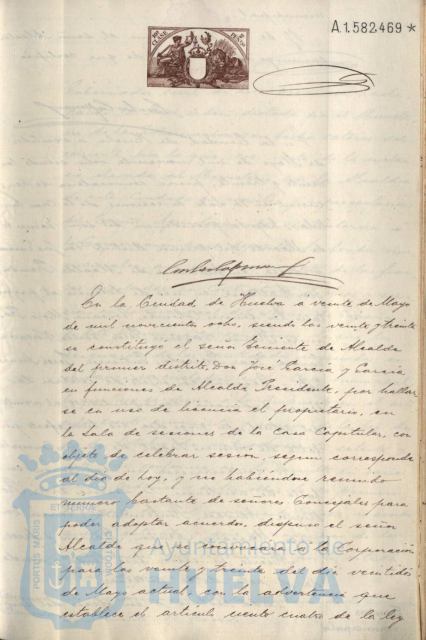 A.1.582.469 *
En la Ciudad de Huelva a veinte de Mayo
de mil novecientos ocho, siendo las veinte y treinta
se constituyó el señor Teniente de Alcalde
del primer distrito, Don José García y García
en funciones de Alcalde Presidente, por hallar
se en uso de licencia el propietario, en
la Sala de sesiones de la Casa Capitular, con
objeto de celebrar sesión, segun corresponde
al dia de hoy, y no habiéndose reunido
número bastante de señores Concejales para
poder adoptar acuerdos, dispuso el señor
Alcalde que se convocase a la Corporación
para las veinte y treinta del dia veintidos
de Mayo actual, con la advertencia que
establece el artículo ciento cuatro de la ley
PORTUS MARIS ET TERRAE CUSTODIA
Ayuntamiento de
HUELVA